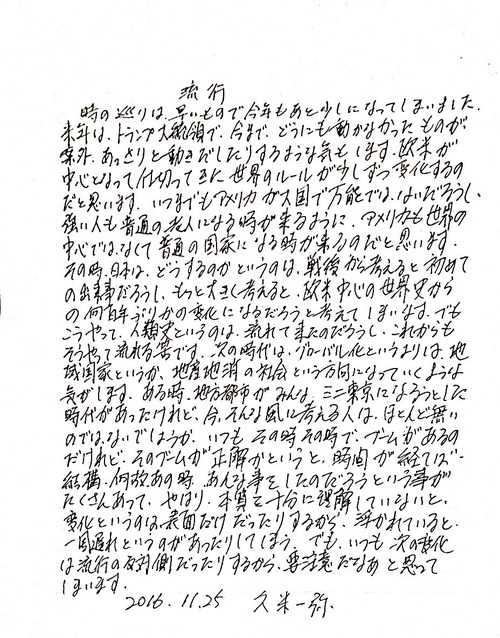 流行
時の巡りは、早いもので今年もあと少しになってしまいました。
来年は、トランプ大統領で、今まで、どうにも動かなかったものが、
案外、あっさりと動きだしたりするような気もします。欧米が
中心となって仕切ってきた世界のルールが少しずつ変化するの
だと思います。いつまでもアメリカが大国で万能では、ないだろうし、
強い人も普通の老人になる時が来るように、アメリカも世界の
中心では、なくて普通の国家になる時が来るのだと思います。
その時、日本は、どうするのかというのは、戦後から考えると初めて
の出来事だろうし、もっと大きく考えると、欧米中心の世界史から
の何百年ぶりかの変化になるだろうと考えてしまいます。でも
こうやって、人類史というのは、流れて来たのだろうし、これからも
そうやって流れる筈です。次の時代は、グローバル化というよりは、地
域国家というか、地産地消の社会という方向になっていくような
気がします。ある時、地方都市がみんな、ミニ東京になろうとした
時代があったけれど、今、そんな風に考える人は、ほとんど無い
のでは、ないでしょうか。いつも その時その時で、ブームがあるの
だけれど、そのブームが正解かというと、時間が経てば
結構、何故あの時、あんな事をしたのだろうという事が
たくさんあって、やはり、本質を十分に理解していないと、
変化というのは、表面だけだったりするから、浮かれていると、
一周遅れというのがあったりしてしまう。でも、いつも次の変化
は流行の反対側だったりするから、要注意だなあと思って
しまいます。
2016.11.25 久米一弥